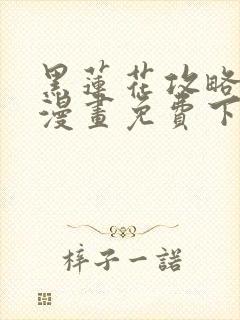 黑蓮花攻略
漫畫免費下
梓子一諾